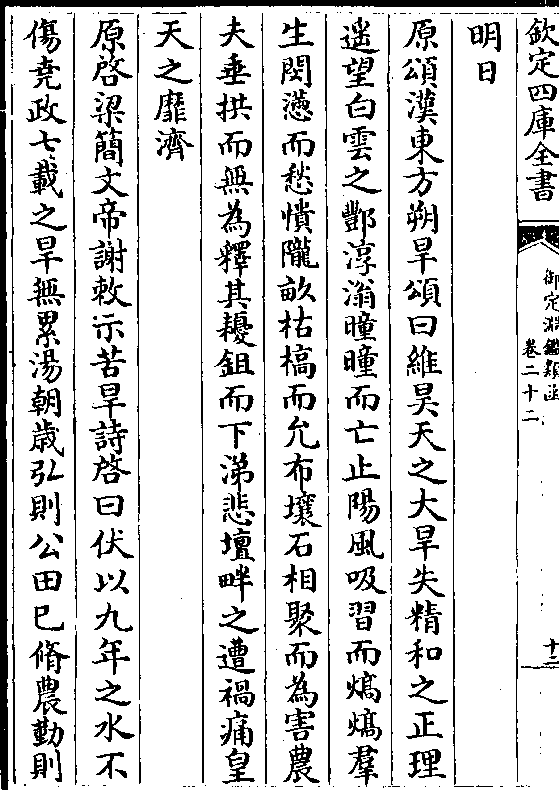 欽定四庫全書
御定淵鑑類函
卷二十二
十二
明日
原頌漢東方朔旱頌曰維昊天之大旱失精和之正理
遥望白雲之酆淳滃曈曈而亡止陽風吸習而熇熇羣
生閔懣而愁憒隴畝枯槁而允布壤石相聚而為害農
夫垂拱而無為釋其耰鉏而下涕悲壇畔之遭禍痛皇
天之靡濟
原啓梁簡文帝謝敕示苦旱詩啓曰伏以九年之水不
傷堯政七載之旱無累湯朝歲弘則公田已脩農勤則